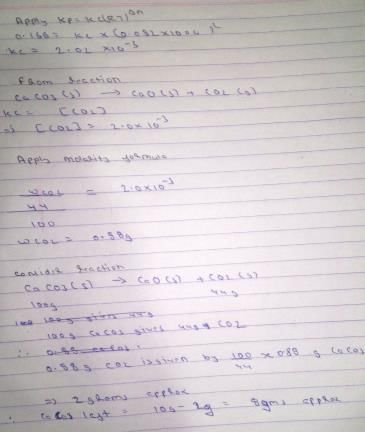 Apply Kp = Kc(RT)^Δn
0.166 = Kc × (0.082 × 1000)^1
Kc = 2.02 × 10^-3
From reaction
CaCO3(s) → CaO(s) + CO2(g)
Kc = [CO2]
⇒ [CO2] = 2.0×10^-3
Apply molarity formula
WCO2 = 2.0×10^-3
44
100
WCO2 = 0.88g
Consider reaction
CaCO3(s) → CaO(s) + CO2(g)
100g 44g
100g gives 44g
100g CaCO3 gives 44g CO2
∴ 0.88 CaCO3
0.88g CO2 is given by 100/44 × 0.88 g CaCO3
⇒ 2 grams approx
∴ CaCO3 left = 10g - 2g = 8gms approx